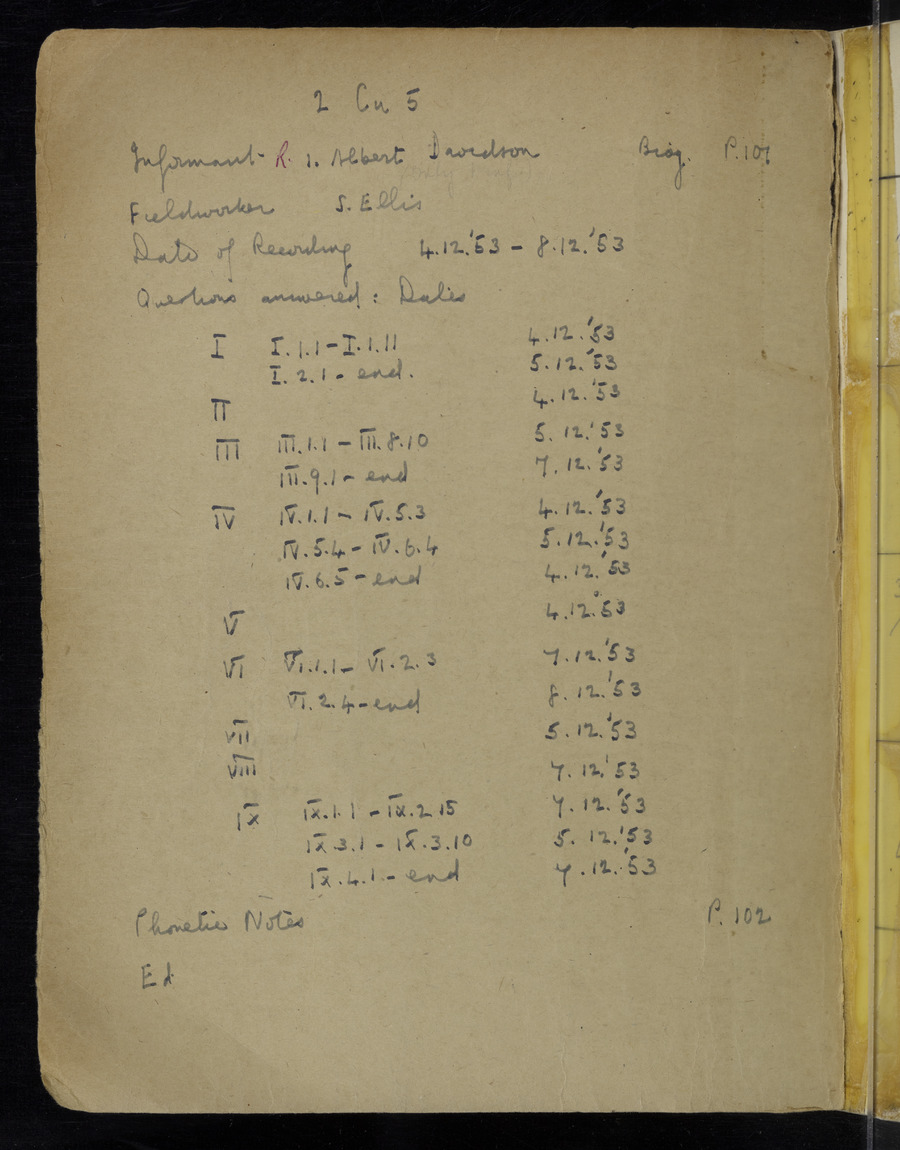 2 Cu 5
Informant R. 1. Albert Davidson Biog. P.101
Fieldworker S. Ellis
Date of Recording 4.12.'53 - 8.12.'53
Questions answered: Dates
I I.1.1 - I.1.11 4.12.'53
I.2.1 - end. 5.12.'53
II 4.12.'53
III III.1.1 - III.8.10 5.12.'53
III.9.1 - end 7.12.'53
IV IV.1.1 - IV.5.3 4.12.'53
IV.5.4 - IV.6.4 5.12.'53
IV.6.5 - end 4.12.'53
V 4.12.'53
VI VI.1.1 - VI.2.3 7.12.'53
VI.2.4 - end 8.12.'53
VII 5.12.'53
VIII 7.12.'53
IX IX.1.1 - IX.2.15 7.12.'53
IX.3.1 - IX.3.10 5.12.'53
IX.4.1 - end 7.12.'53
Phonetic Notes P. 102
Ed